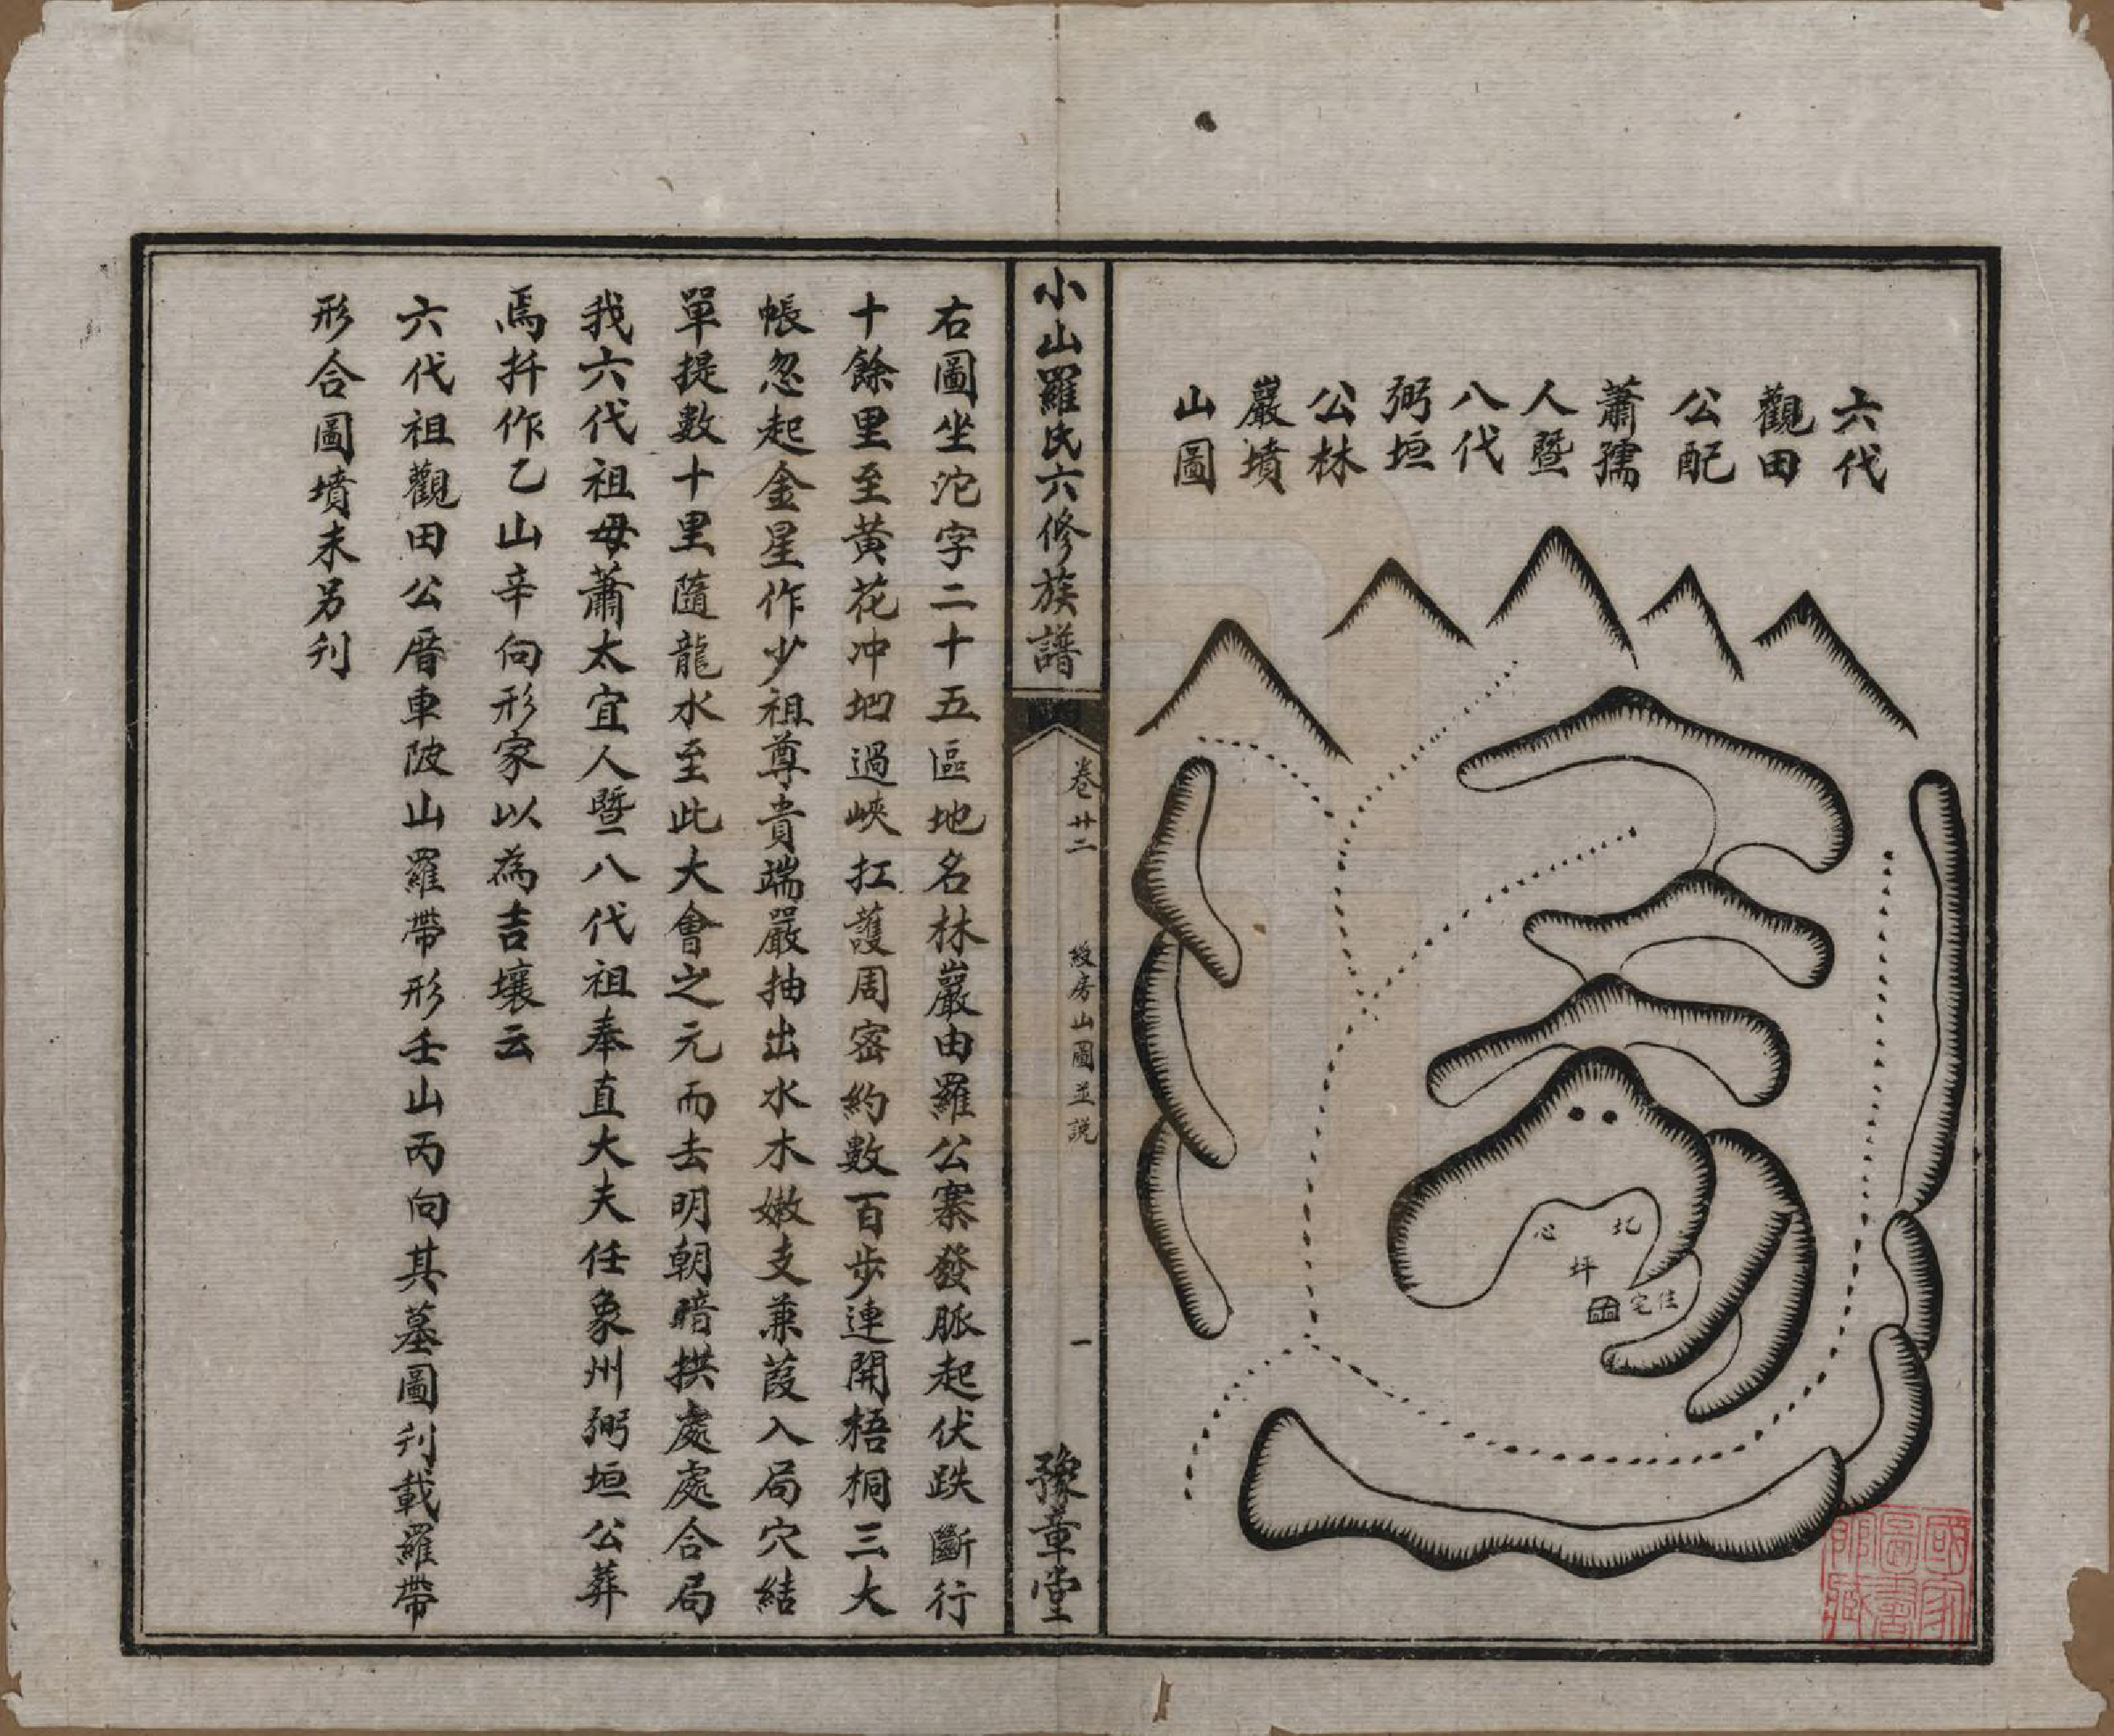 六代
觀田
公配
蕭孺
人暨
八代
弼垣
公林
巖墳
山圖
北
坪
心
住宅
國家
圖書
館藏
小山羅氏六修族譜
卷廿二
綬房山圖並説
一
豫章堂
右圖坐沱字二十五區地名林巖由羅公寨發脈起伏跌斷行
十餘里至黃花冲地過峽扛護周密約數百步連開梧桐三大
帳忽起金星作少祖尊貴端嚴抽出水木嫩支兼葭入局穴結
單提數十里隨龍水至此大會之元而去明朝暗拱處處合局
我六代祖母蕭太宜人暨八代祖奉直大夫任象州弼垣公葬
焉扦作乙山辛向形家以為吉壤云
六代祖觀田公厝車陂山羅帶形壬山丙向其墓圖刋載羅帶
形合圖墳未另刋